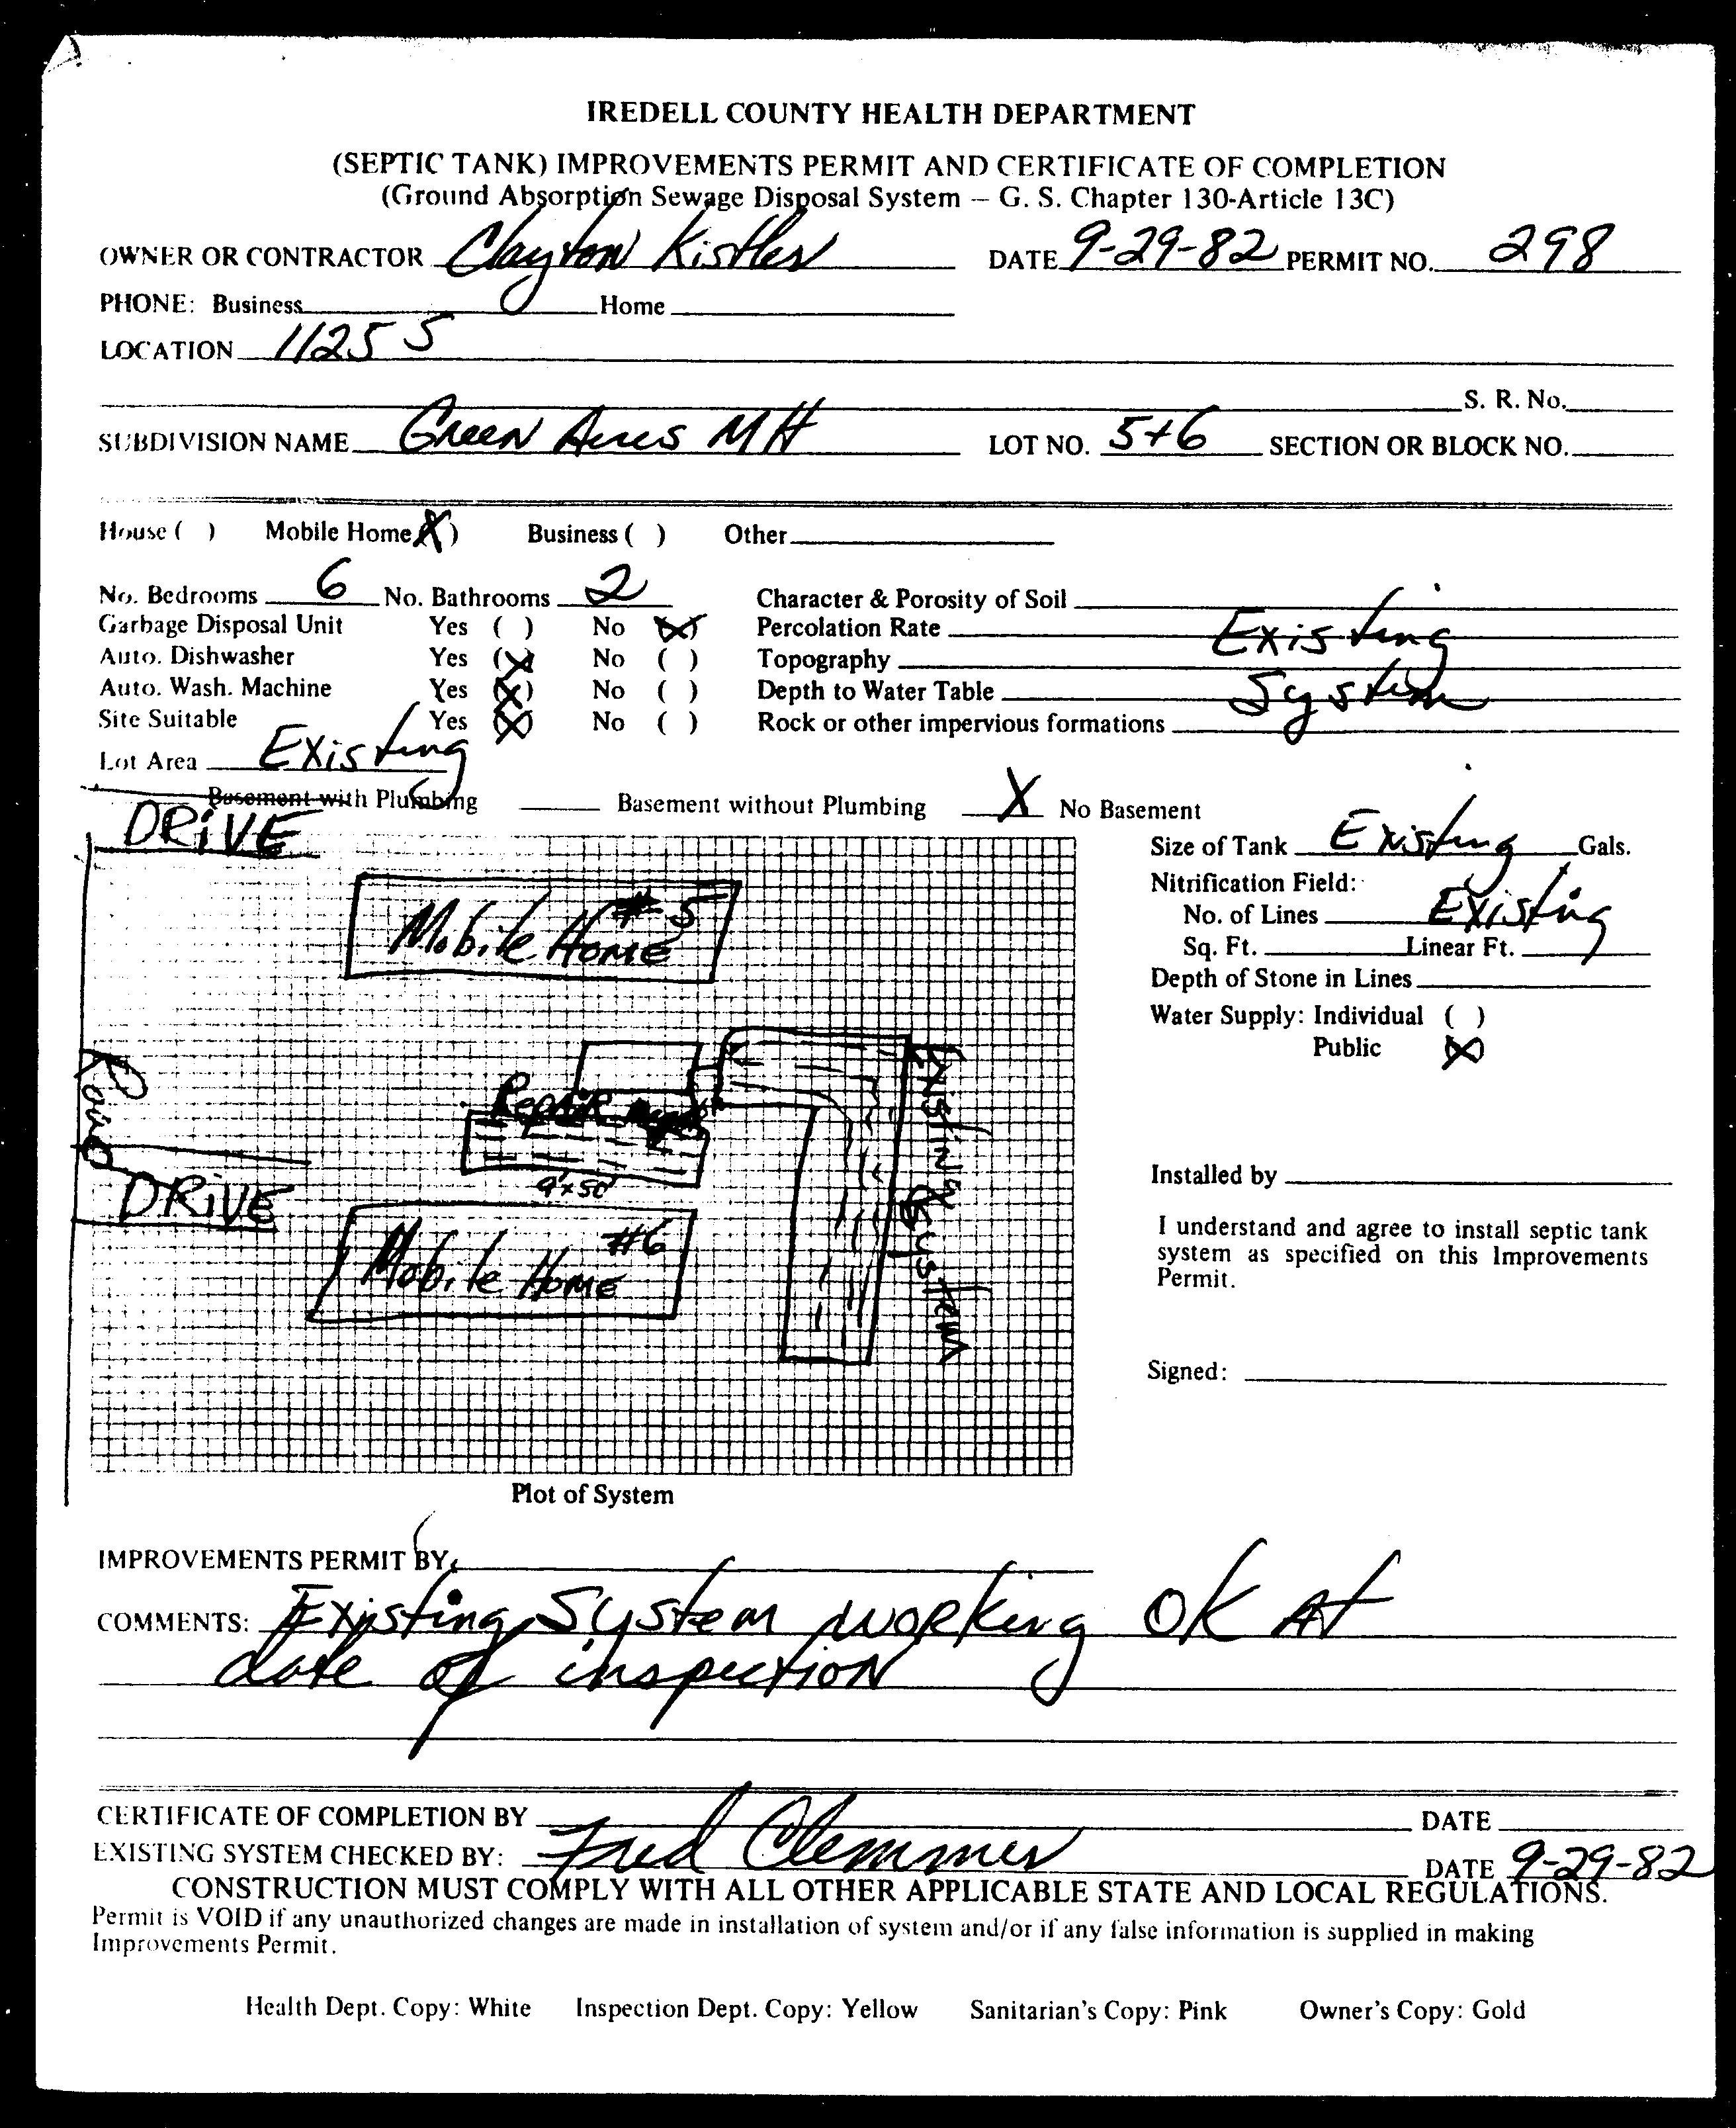 IREDELL COUNTY HEALTH DEPARTMENT
(SEPTIC TANK) IMPROVEMENTS PERMIT AND CERTIFICATE OF COMPLETION
(Ground Absorption Sewage Disposal System – G. S. Chapter 130-Article 13C)
OWNER OR CONTRACTOR Clayton Kistler DATE 9-29-82 PERMIT NO. 298
PHONE: Business Home
LOCATION 1125 S
S. R. No.
SUBDIVISION NAME Green Acres MH LOT NO. 5+6 SECTION OR BLOCK NO.
House ( ) Mobile Home (X) Business ( ) Other
No. Bedrooms 6 No. Bathrooms 2 Character & Porosity of Soil
Garbage Disposal Unit Yes ( ) No (X) Percolation Rate Existing
Auto. Dishwasher Yes (X) No ( ) Topography
Auto. Wash. Machine Yes (X) No ( ) Depth to Water Table System
Site Suitable Yes (X) No ( ) Rock or other impervious formations
Lot Area Existing
Basement with Plumbing Basement without Plumbing X No Basement
DRIVE
Size of Tank Existing Gals.
Nitrification Field:
Mobile Home #5
No. of Lines Existing
Sq. Ft. Linear Ft.
Depth of Stone in Lines
Water Supply: Individual ( )
Public (X)
Existing System
Repair
Road
9'x50'
Installed by
DRIVE
Mobile Home #6
I understand and agree to install septic tank
system as specified on this Improvements
Permit.
Signed:
Plot of System
IMPROVEMENTS PERMIT BY
COMMENTS: Existing System working OK At
date of inspection
CERTIFICATE OF COMPLETION BY DATE
EXISTING SYSTEM CHECKED BY: Fred Clemmer DATE 9-29-82
CONSTRUCTION MUST COMPLY WITH ALL OTHER APPLICABLE STATE AND LOCAL REGULATIONS.
Permit is VOID if any unauthorized changes are made in installation of system and/or if any false information is supplied in making
Improvements Permit.
Health Dept. Copy: White Inspection Dept. Copy: Yellow Sanitarian's Copy: Pink Owner's Copy: Gold